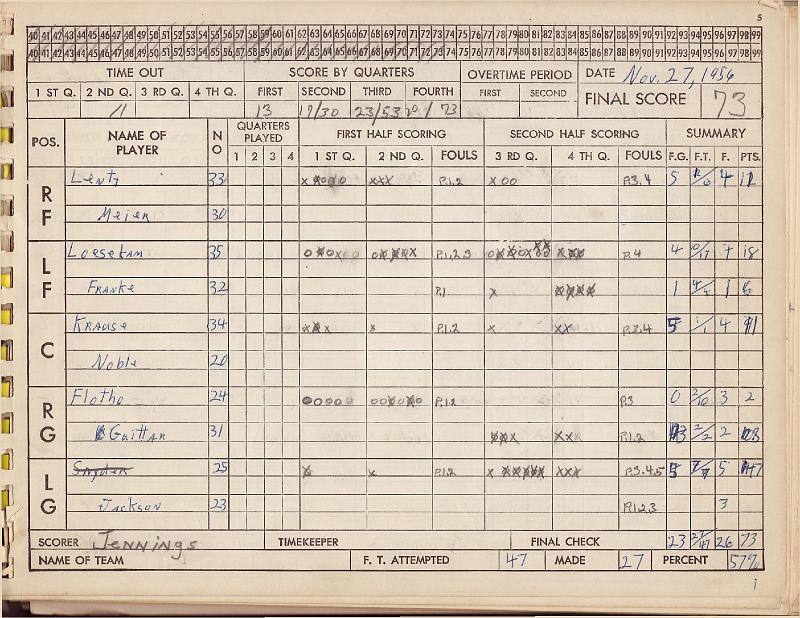 5
40 41 42 43 44 45 46 47 48 49 50 51 52 53 54 55 56 57 58 59 60 61 62 63 64 65 66 67 68 69 70 71 72 73 74 75 76 77 78 79 80 81 82 83 84 85 86 87 88 89 90 91 92 93 94 95 96 97 98 99
40 41 42 43 44 45 46 47 48 49 50 51 52 53 54 55 56 57 58 59 60 61 62 63 64 65 66 67 68 69 70 71 72 73 74 75 76 77 78 79 80 81 82 83 84 85 86 87 88 89 90 91 92 93 94 95 96 97 98 99
TIME OUT SCORE BY QUARTERS OVERTIME PERIOD DATE Nov. 27, 1956
1 ST Q. 2 ND Q. 3 RD Q. 4 TH Q. FIRST SECOND THIRD FOURTH FIRST SECOND FINAL SCORE 73
11 13 17/30 23/53 20/73
POS. NAME OF PLAYER NO QUARTERS PLAYED 1 2 3 4 FIRST HALF SCORING 1 ST Q. 2 ND Q. FOULS SECOND HALF SCORING 3 RD Q. 4 TH Q. FOULS SUMMARY F.G. F.T. F. PTS.
RF Lentz 33 xxx P.1.2 x00 P.3.4 5 4
Meier 30
LF Loesekam 35 P.1.2.3 P.4 4 10/17 4 18
Franke 32 P.1 x 1 1 6
C Krause 34 x P.1.2 x xx 5 1/1 4 11
Noble 20
RG Flotho 24 00000 P.1.2 P.3 0 2/10 3 2
31 P.1.2 3 2/2 2 8
LG Snyder 25 x P.1.2 P.3.4.5 5 7/7 5 17
Jackson 23 P.1.2.3 3
SCORER Jennings TIMEKEEPER FINAL CHECK 23 27/47 26 73
NAME OF TEAM F. T. ATTEMPTED 47 MADE 27 PERCENT 57%
1